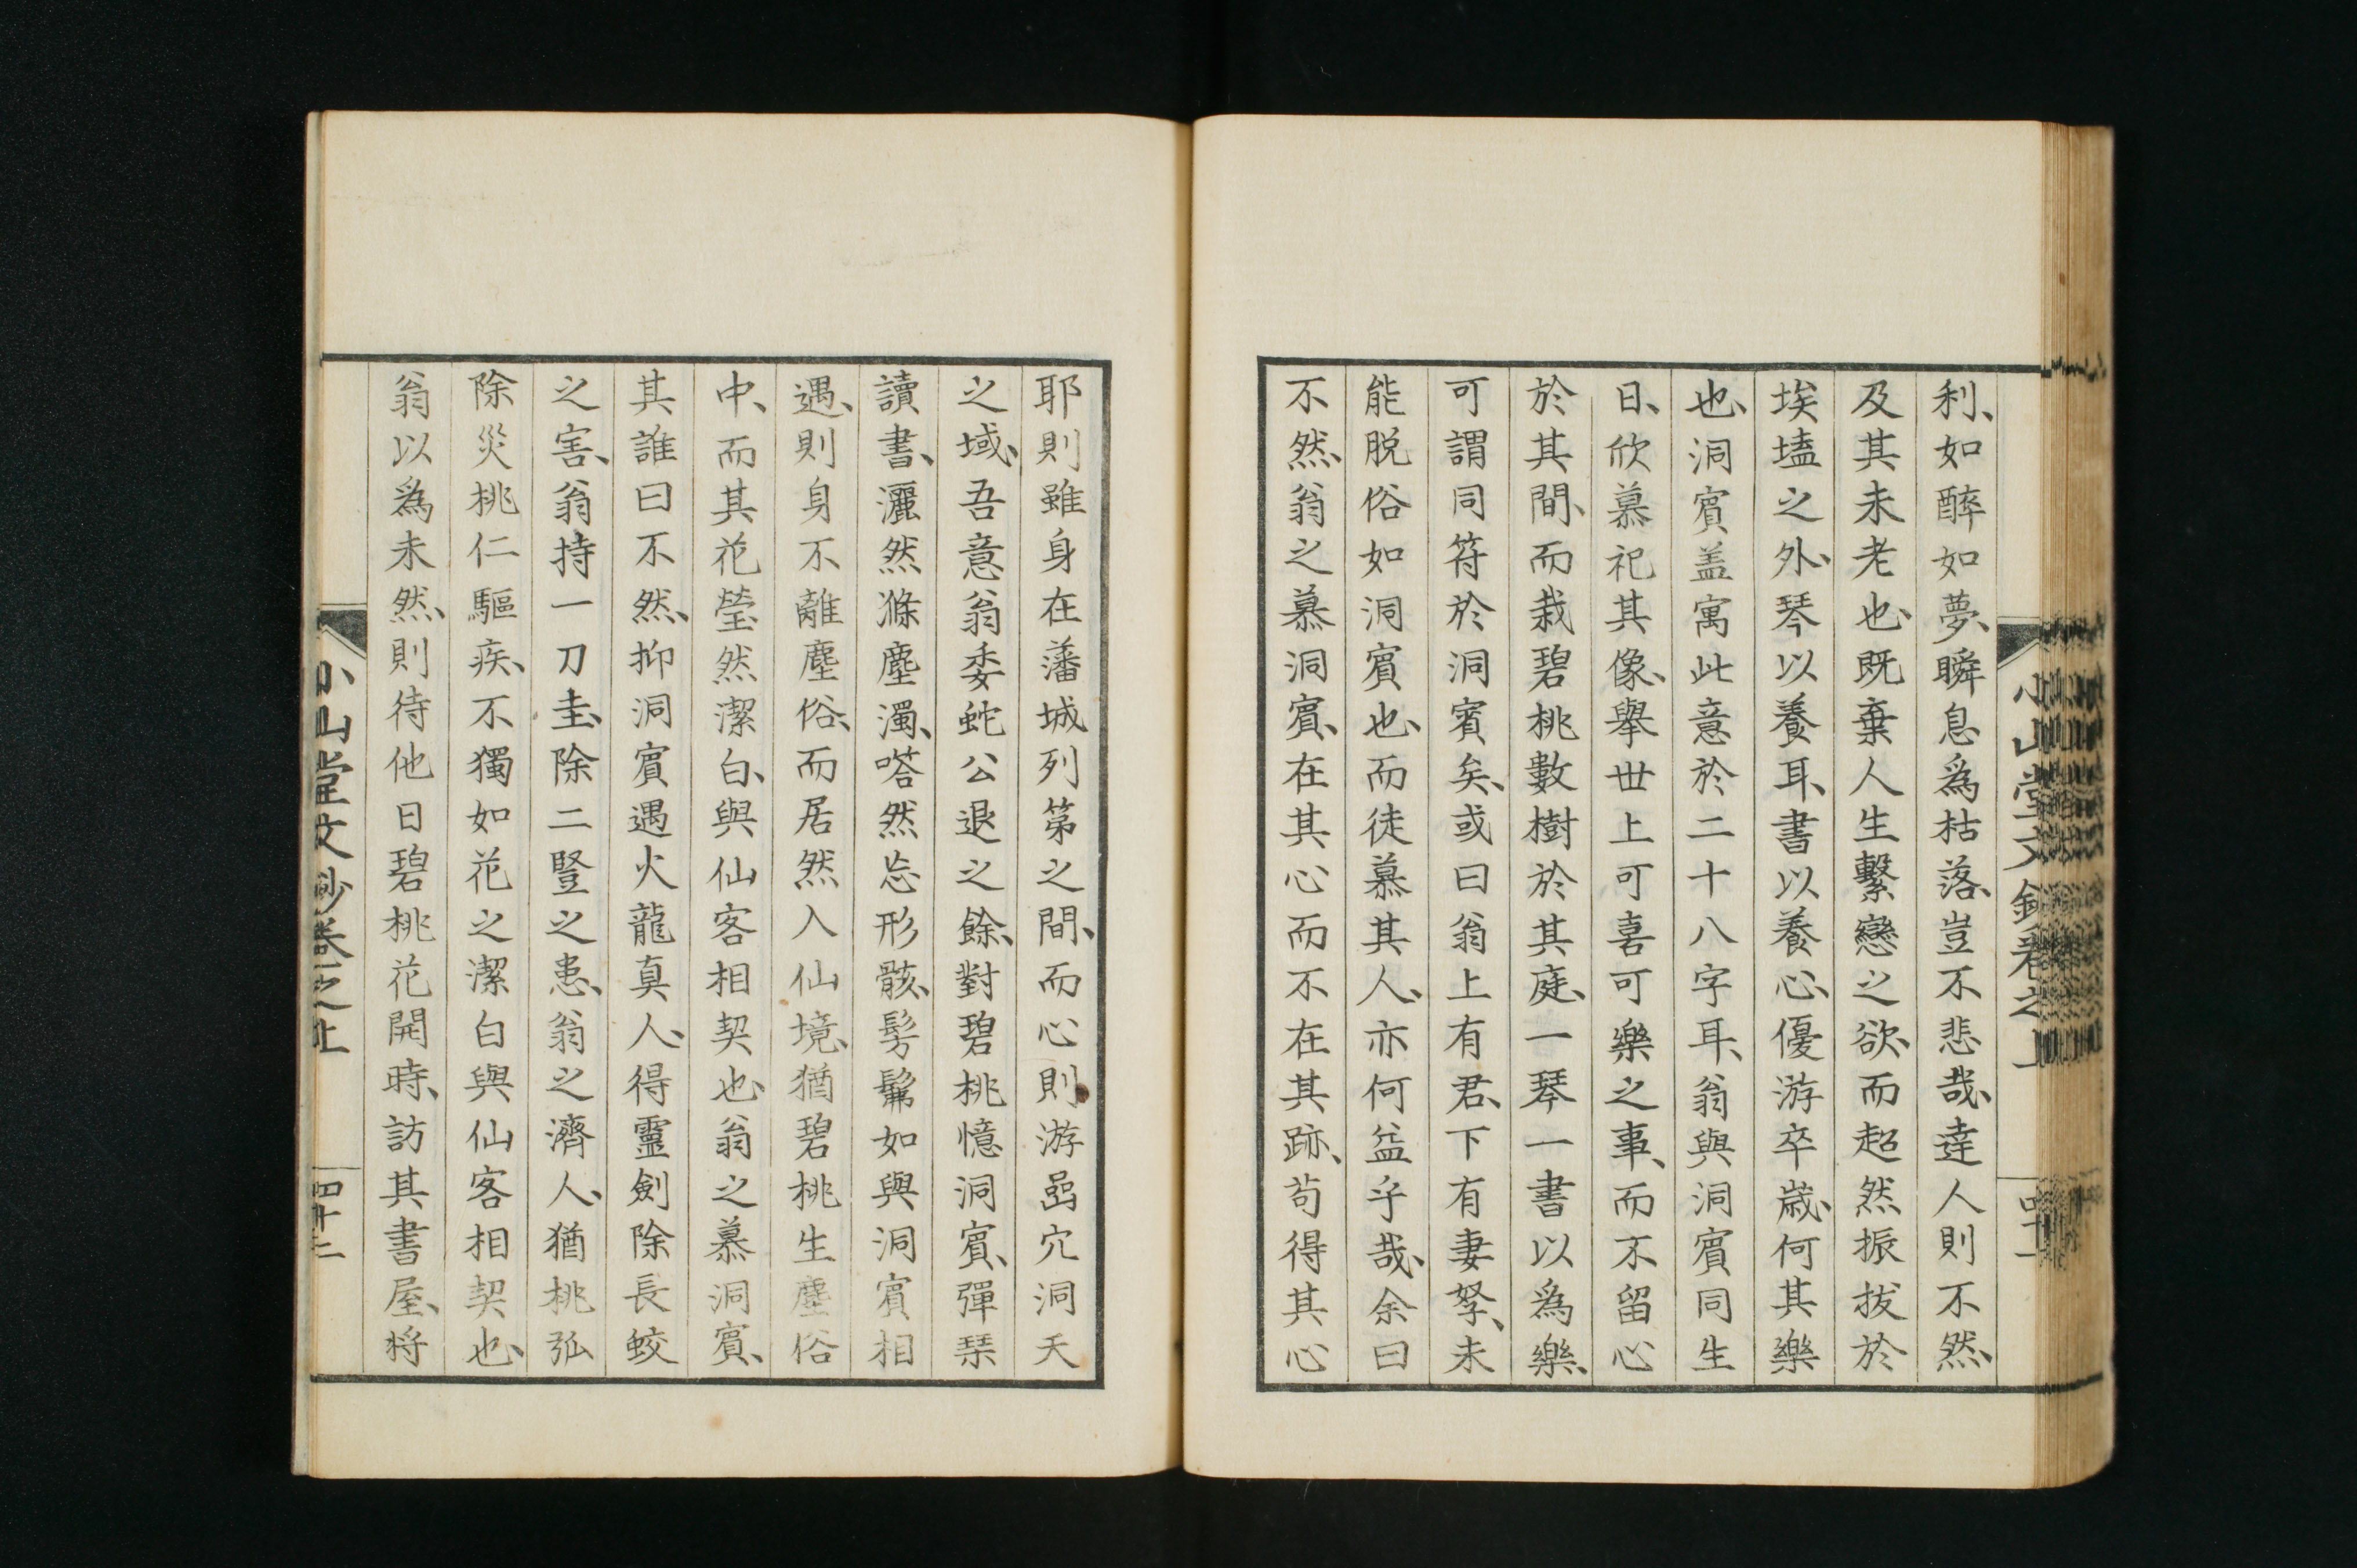 利、如醉如夢、瞬息爲枯落、豈不悲哉、達人則不然、
及其未老也、既棄人生繫戀之欲、而超然振拔於
埃壒之外、琴以養耳、書以養心、優游卒歳、何其樂
也、洞賓盖寓此意於二十八字耳、翁與洞賓同生
日、欣慕祀其像、擧世上可喜可樂之事、而不留心
於其間、而栽碧桃數樹於其庭、一琴一書以爲樂、
可謂同符於洞賓矣、或曰翁上有君、下有妻孥、未
能脱俗如洞賓也、而徒慕其人、亦何益乎哉、余曰
不然、翁之慕洞賓、在其心而不在其跡、苟得其心
耶則雖身在藩城列第之間、而心則游嵒穴洞天
之域、吾意翁委蛇公退之餘、對碧桃憶洞賓、彈琹
讀書、灑然滌塵濁、嗒然忘形骸、髣髴如與洞賓相
遇、則身不離塵俗、而居然入仙境、猶碧桃生塵俗
中、而其花瑩然潔白、與仙客相契也、翁之慕洞賓、
其誰曰不然、抑洞賓遇火龍真人、得靈劍除長鮫
之害、翁持一刀圭、除二豎之患、翁之濟人、猶桃弧
除災桃仁驅疾、不獨如花之潔白與仙客相契也、
翁以爲未然、則待他日碧桃花開時、訪其書屋、将
小山堂文鈔卷之上
四十二